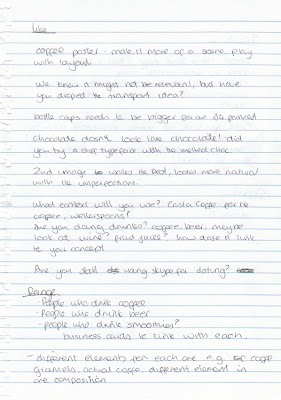 like
coffee poster - make it more of a scene, play
with layout.
We know it might not be relevant, but have
you dropped the transport idea?
bottle caps needs to be bigger for an
chocolate doesn't look like chocolate! did
you try a diff typeface with the melted choc
2nd image works the best, looks more natural
with the imperfections.
What context will you use? Costa Coffee for the
coffee, wetherspoons?
Are you doing drinks? coffee, beer, maybe
look at wine? fruit juices? how does it link
to your concept
Are you still using skype for dating?
- People who drink coffee
- People who drink beer
- people who drink smoothies?
business cards to link with each.
- different elements for each one e.g. coffee
granuels, actual coffee. different elements in
one composition